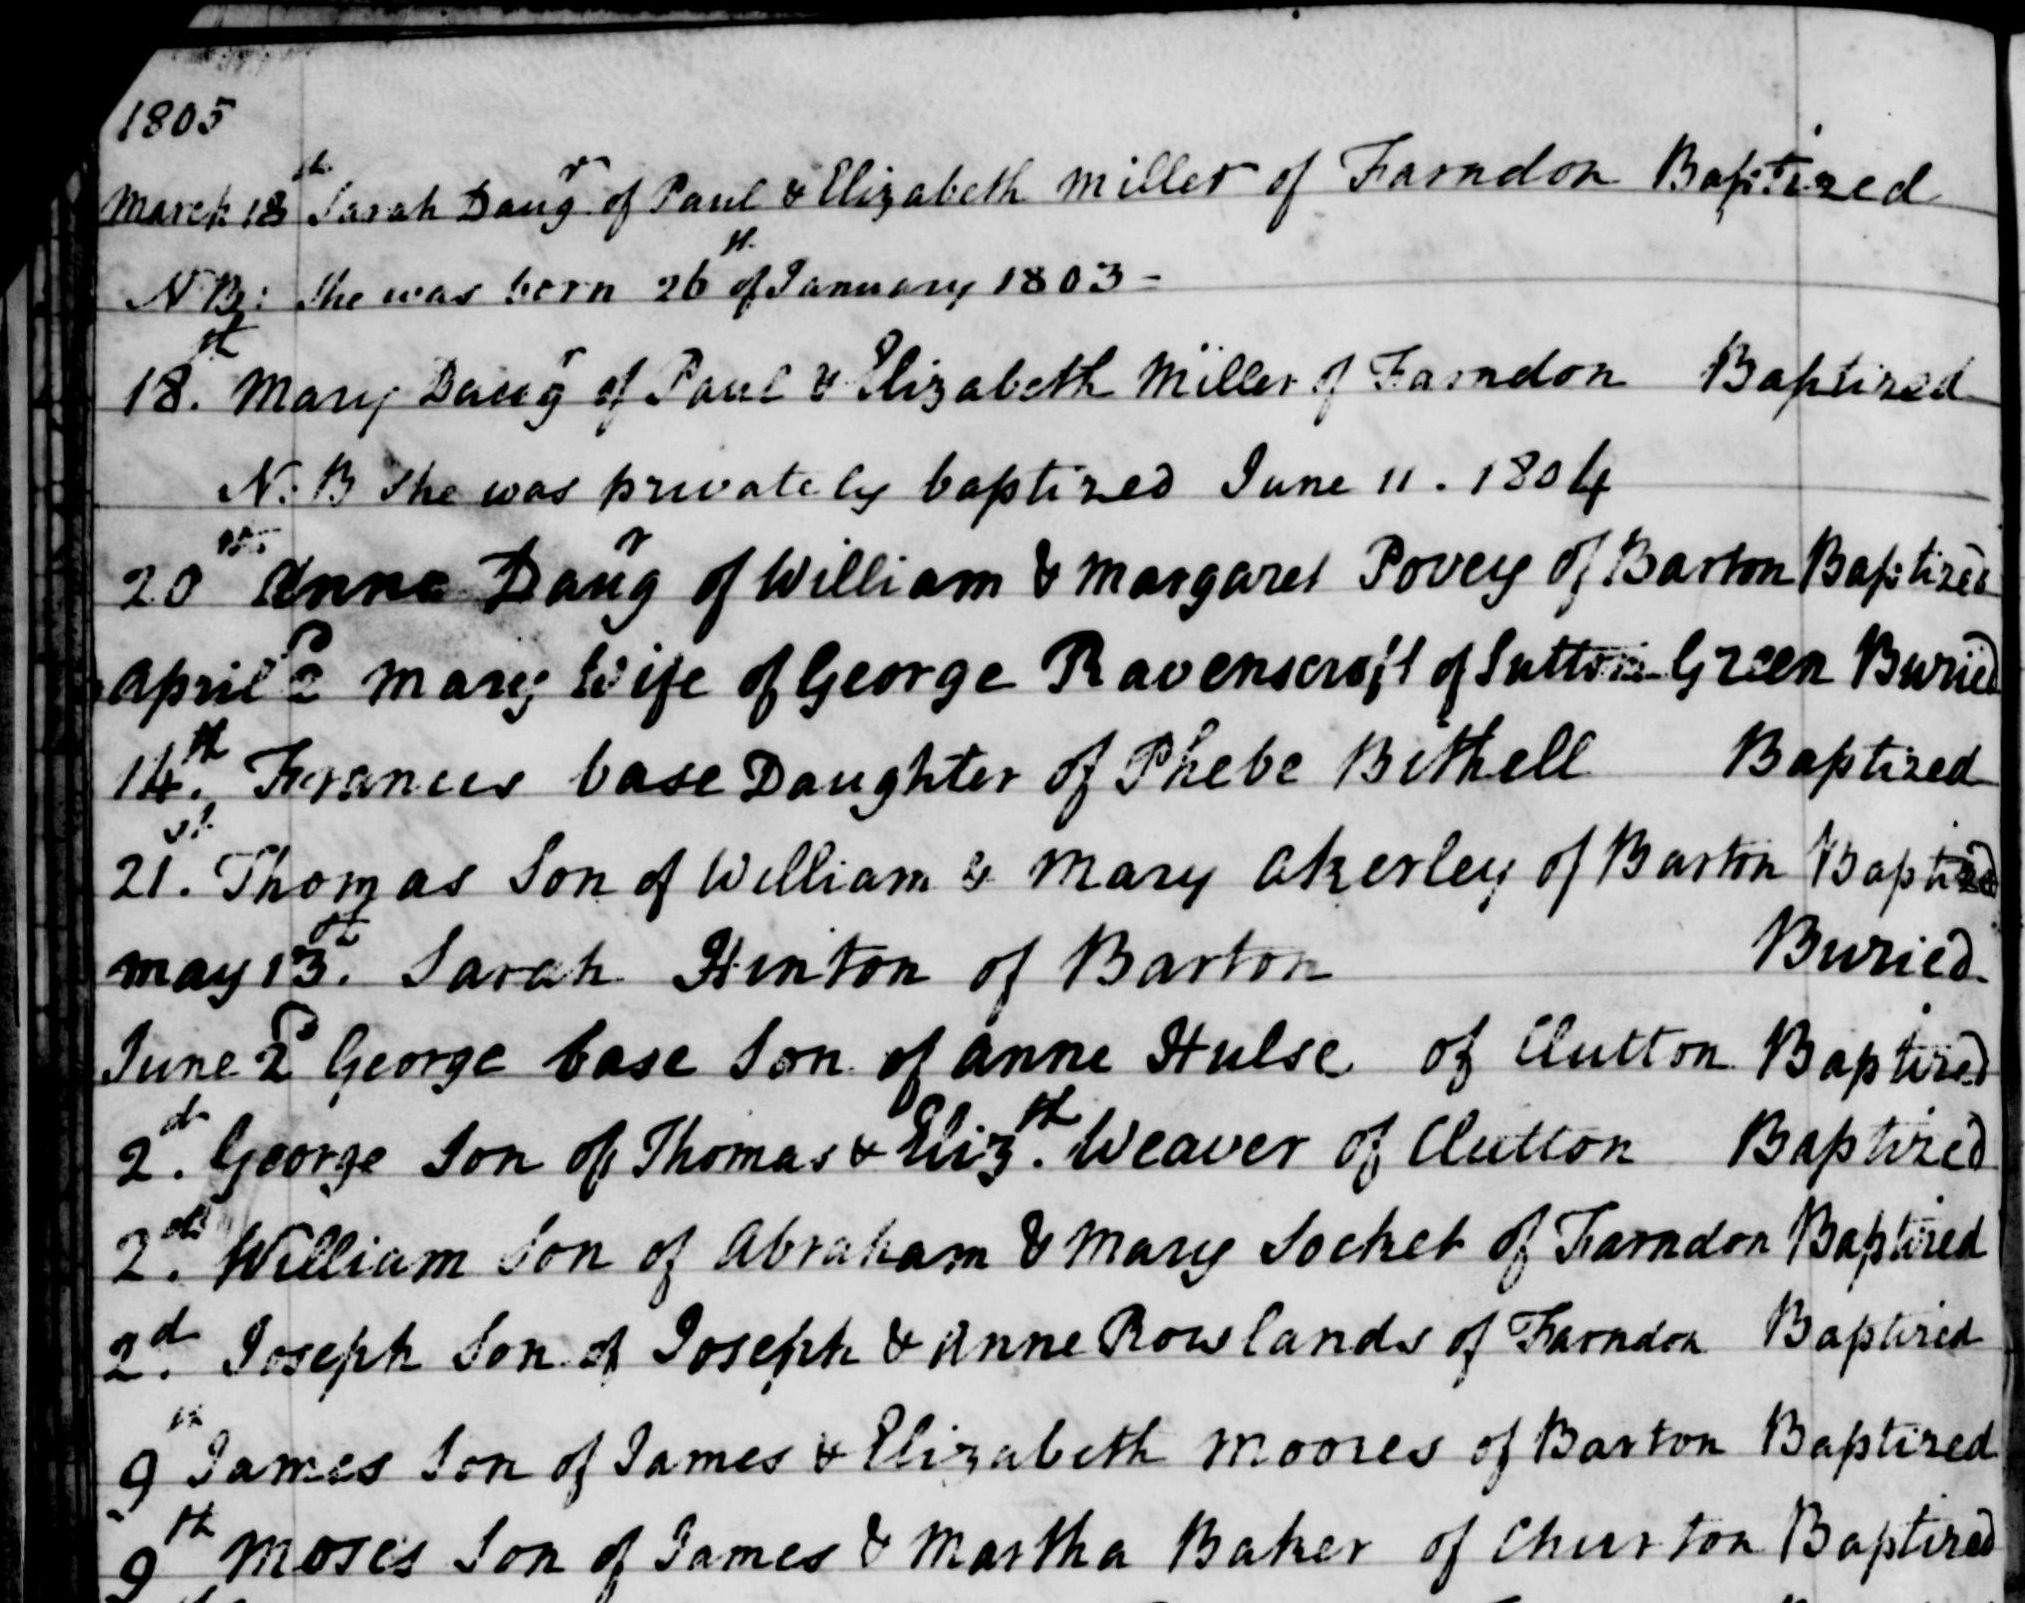 1805
March 18th Sarah Daugr of Paul & Elizabeth Miller of Farndon Baptized
N B: She was born 26th of January 1803 -
18th. Mary Daugr of Paul & Elizabeth Miller of Farndon Baptized
N. B She was privately baptized June 11. 1804
20th Anne Daugr of William & Margaret Povey of Barton Baptized
April 2d Mary Wife of George Ravenscroft of Sutton Green Buried
14th. Frances base Daughter of Phebe Bithell Baptized
21st. Thomas Son of William & Mary Akerley of Barton Baptized
May 13th. Sarah Hinton of Barton Buried
June 2d George base Son of Anne Hulse of Clutton Baptized
2d. George Son of Thomas & Elizth. Weaver of Clutton Baptized
2d. William Son of Abraham & Mary Socket of Farndon Baptized
2d. Joseph Son of Joseph & Anne Rowlands of Farndon Baptized
9th James Son of James & Elizabeth Moores of Barton Baptized
9th Moses Son of James & Martha Baker of Churton Baptized